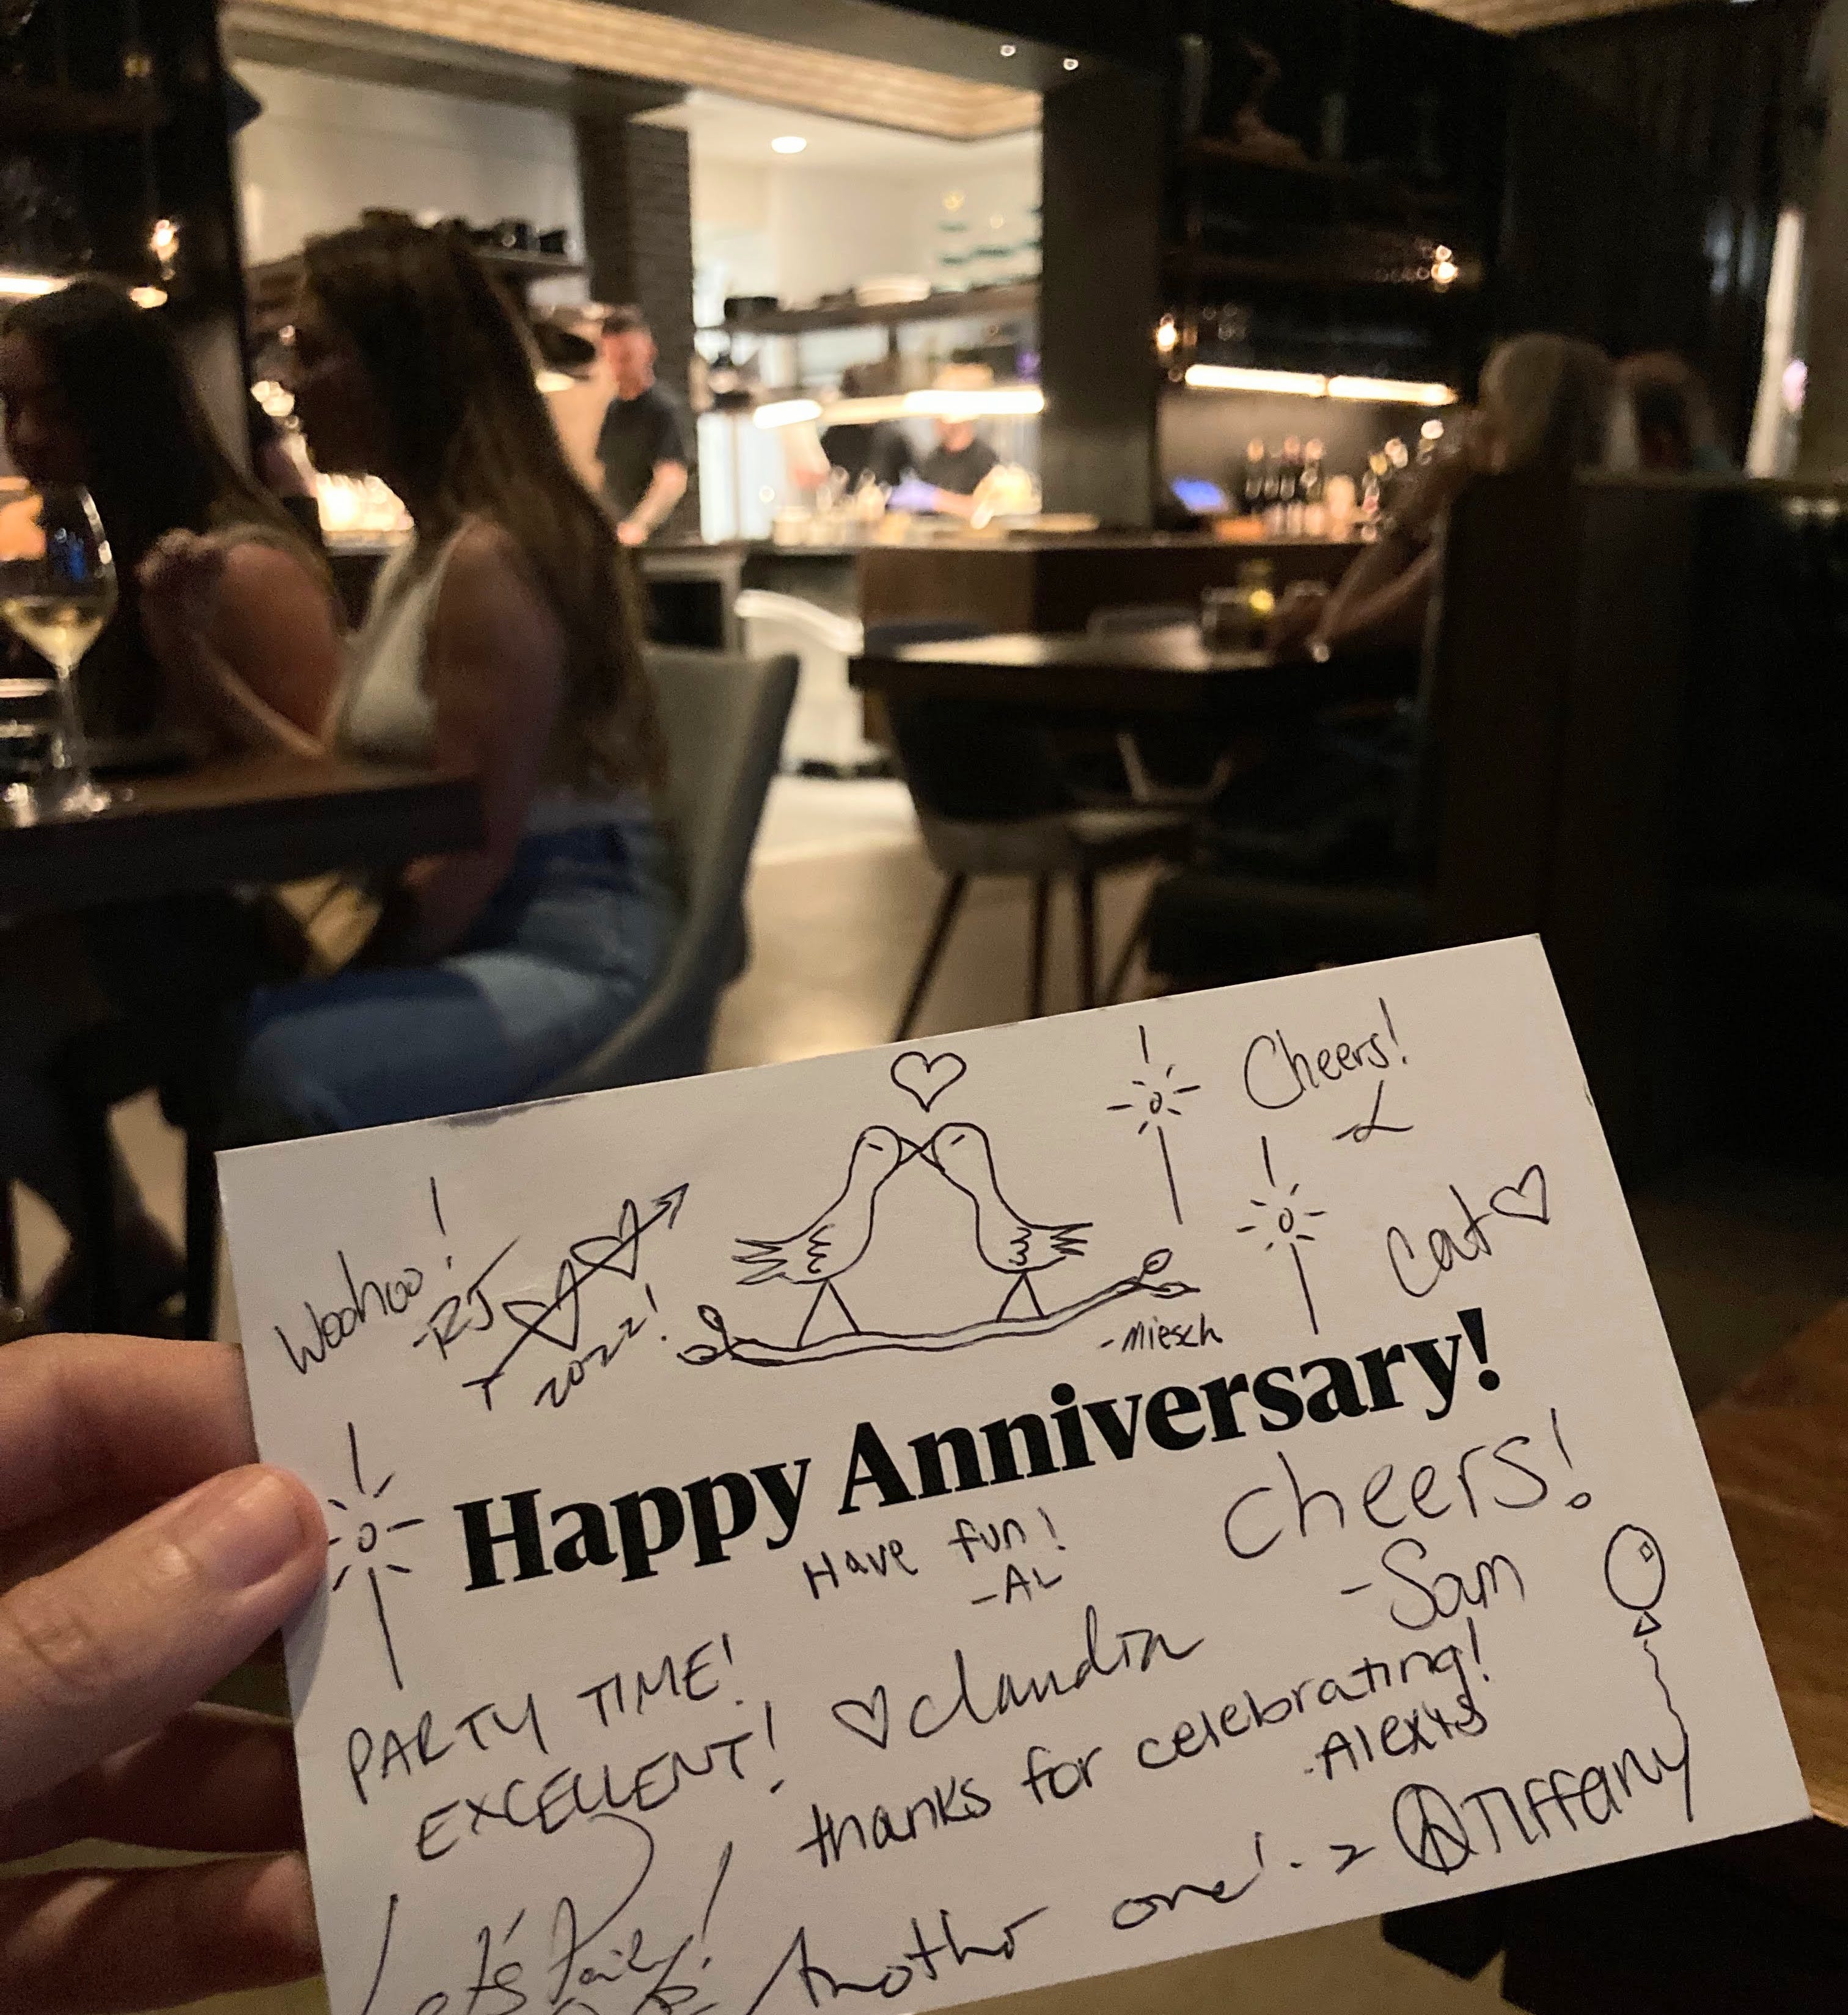 Cheers!
-L
Woohoo!
-RJ
2022!
Cat
-miesch
Happy Anniversary!
Have fun!
-AL
Cheers!
-Sam
PARTY TIME!
EXCELLENT!
Claudia
thanks for celebrating!
-Alexis
Tiffany
Another one!
Let's